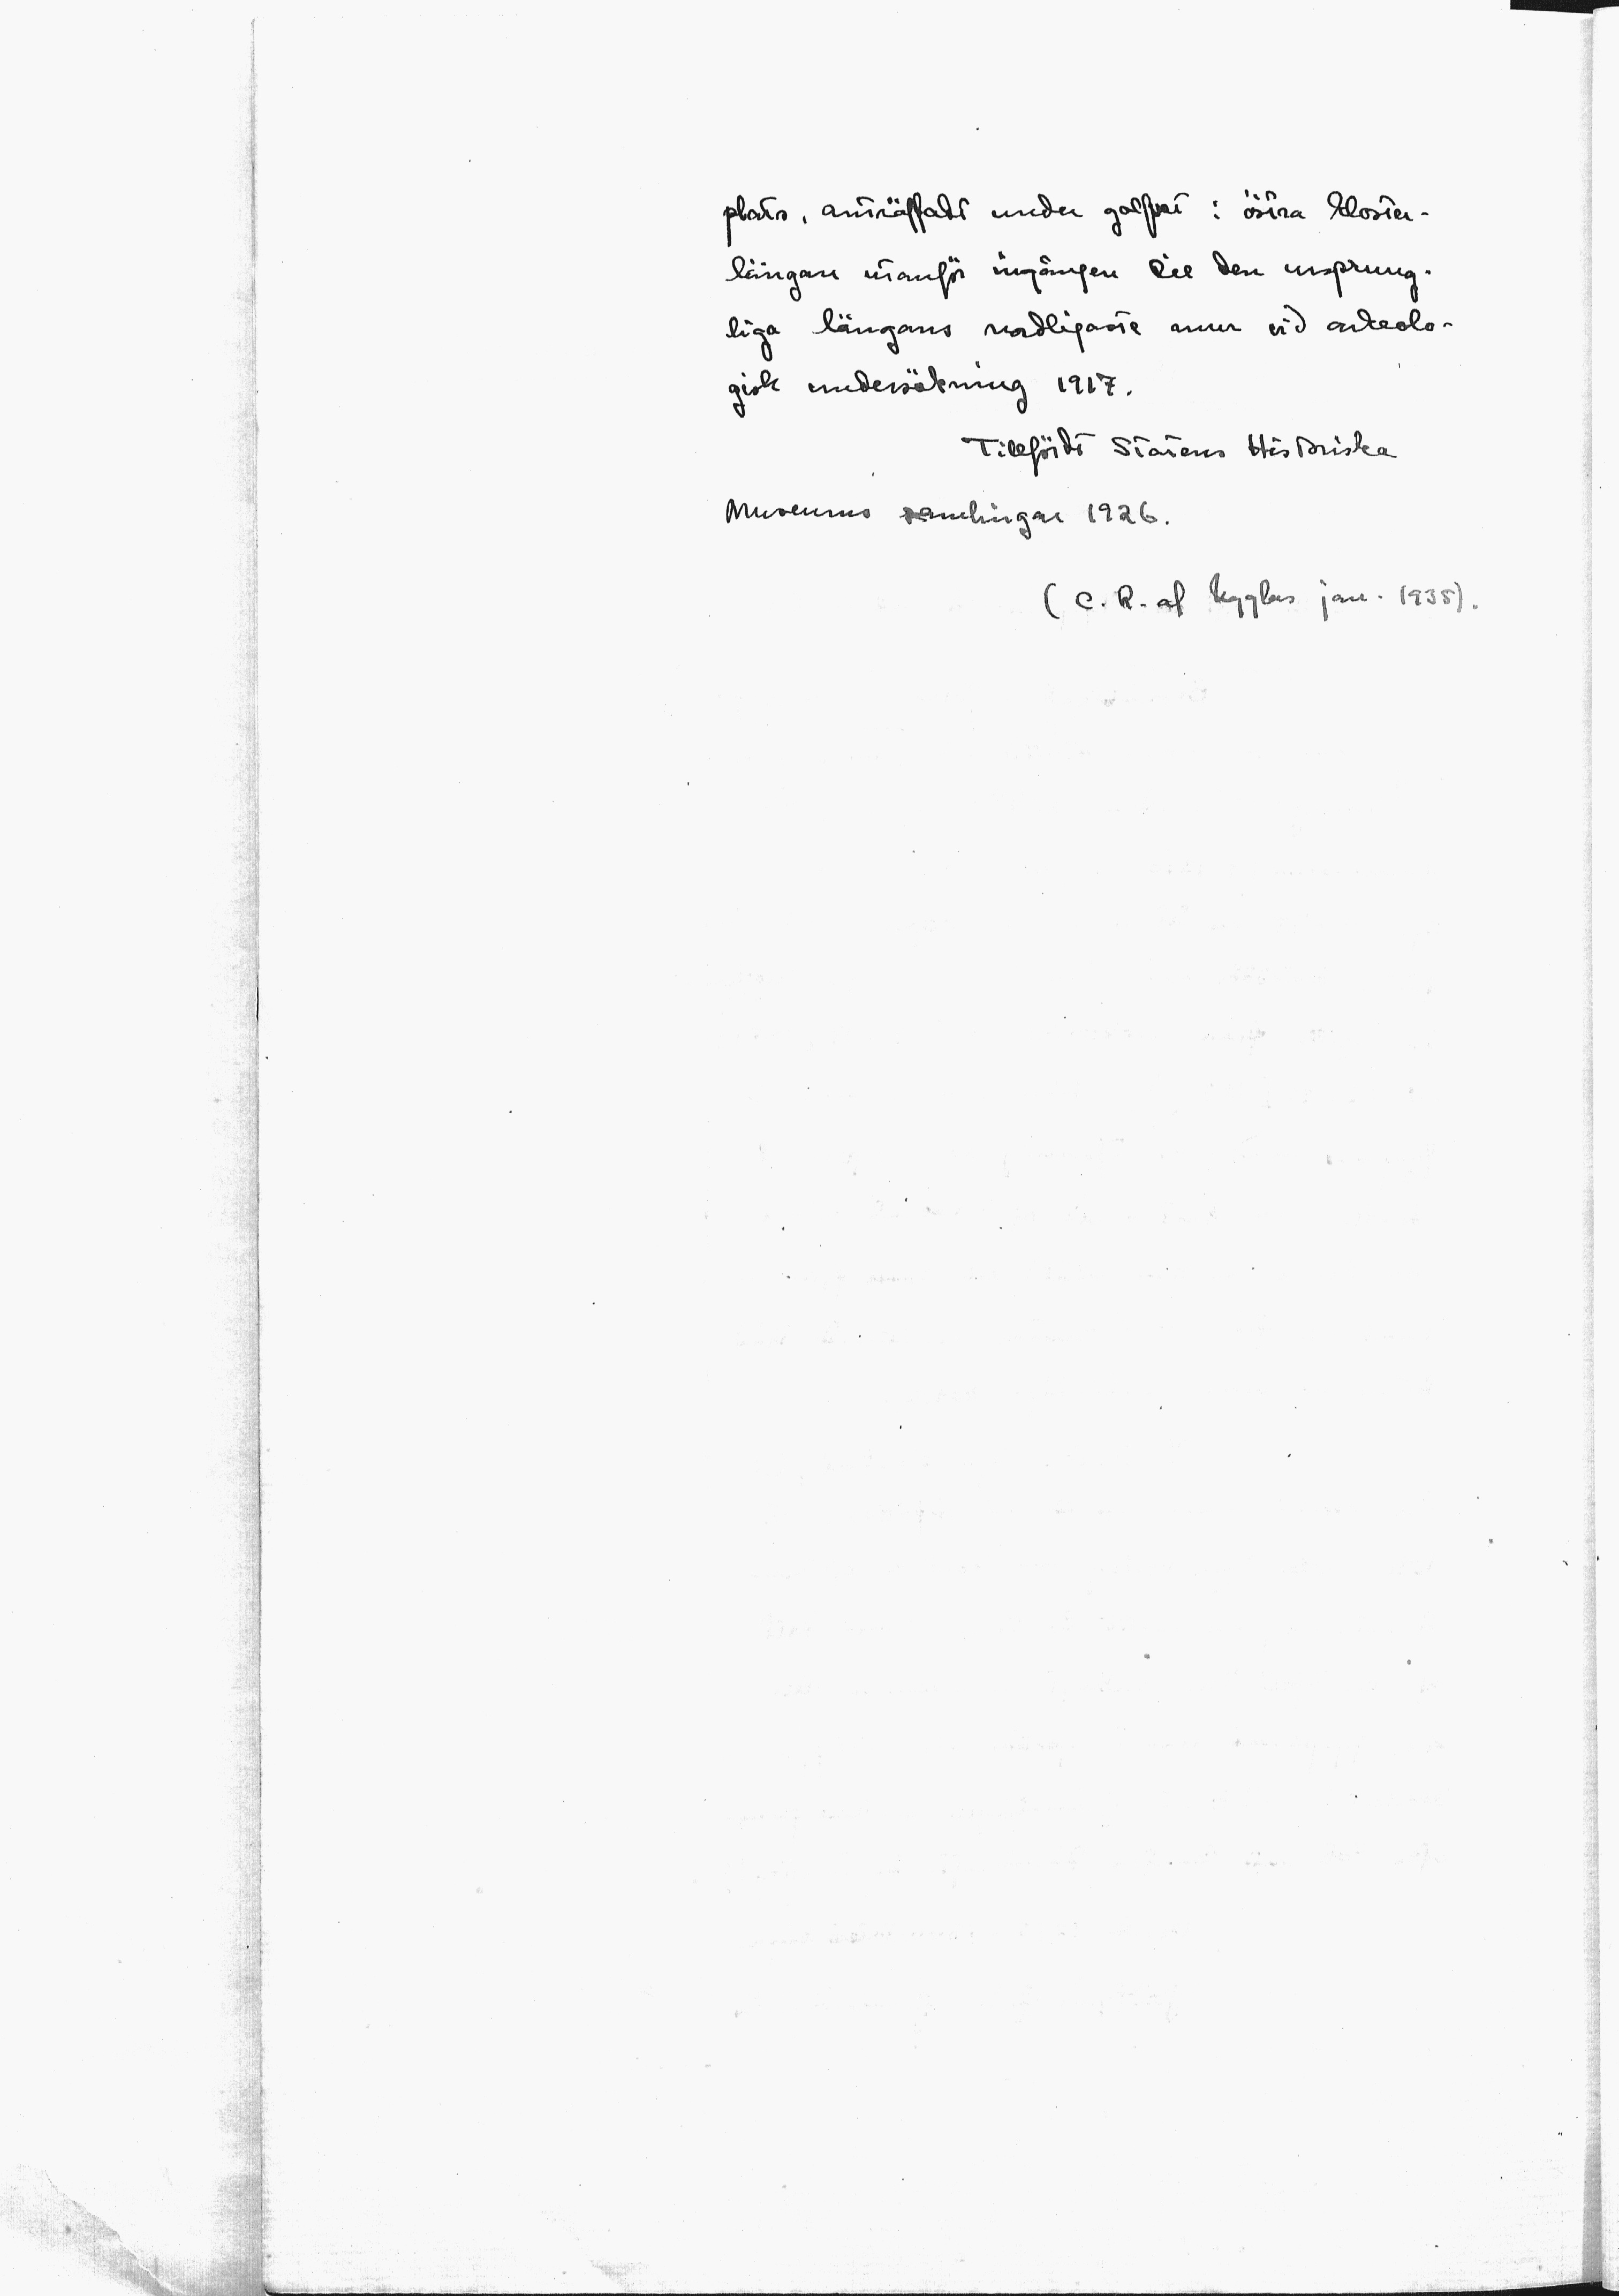 plats, anträffadt under golfvet i östra kloster-
längan utanför ingången till den ursprung-
liga längans nordligaste mur vid arkeolo-
gisk undersökning 1917.
Tillfördt Statens Historiska
Museums samlingar 1926.
(C. R. af Ugglas jan. 1935).